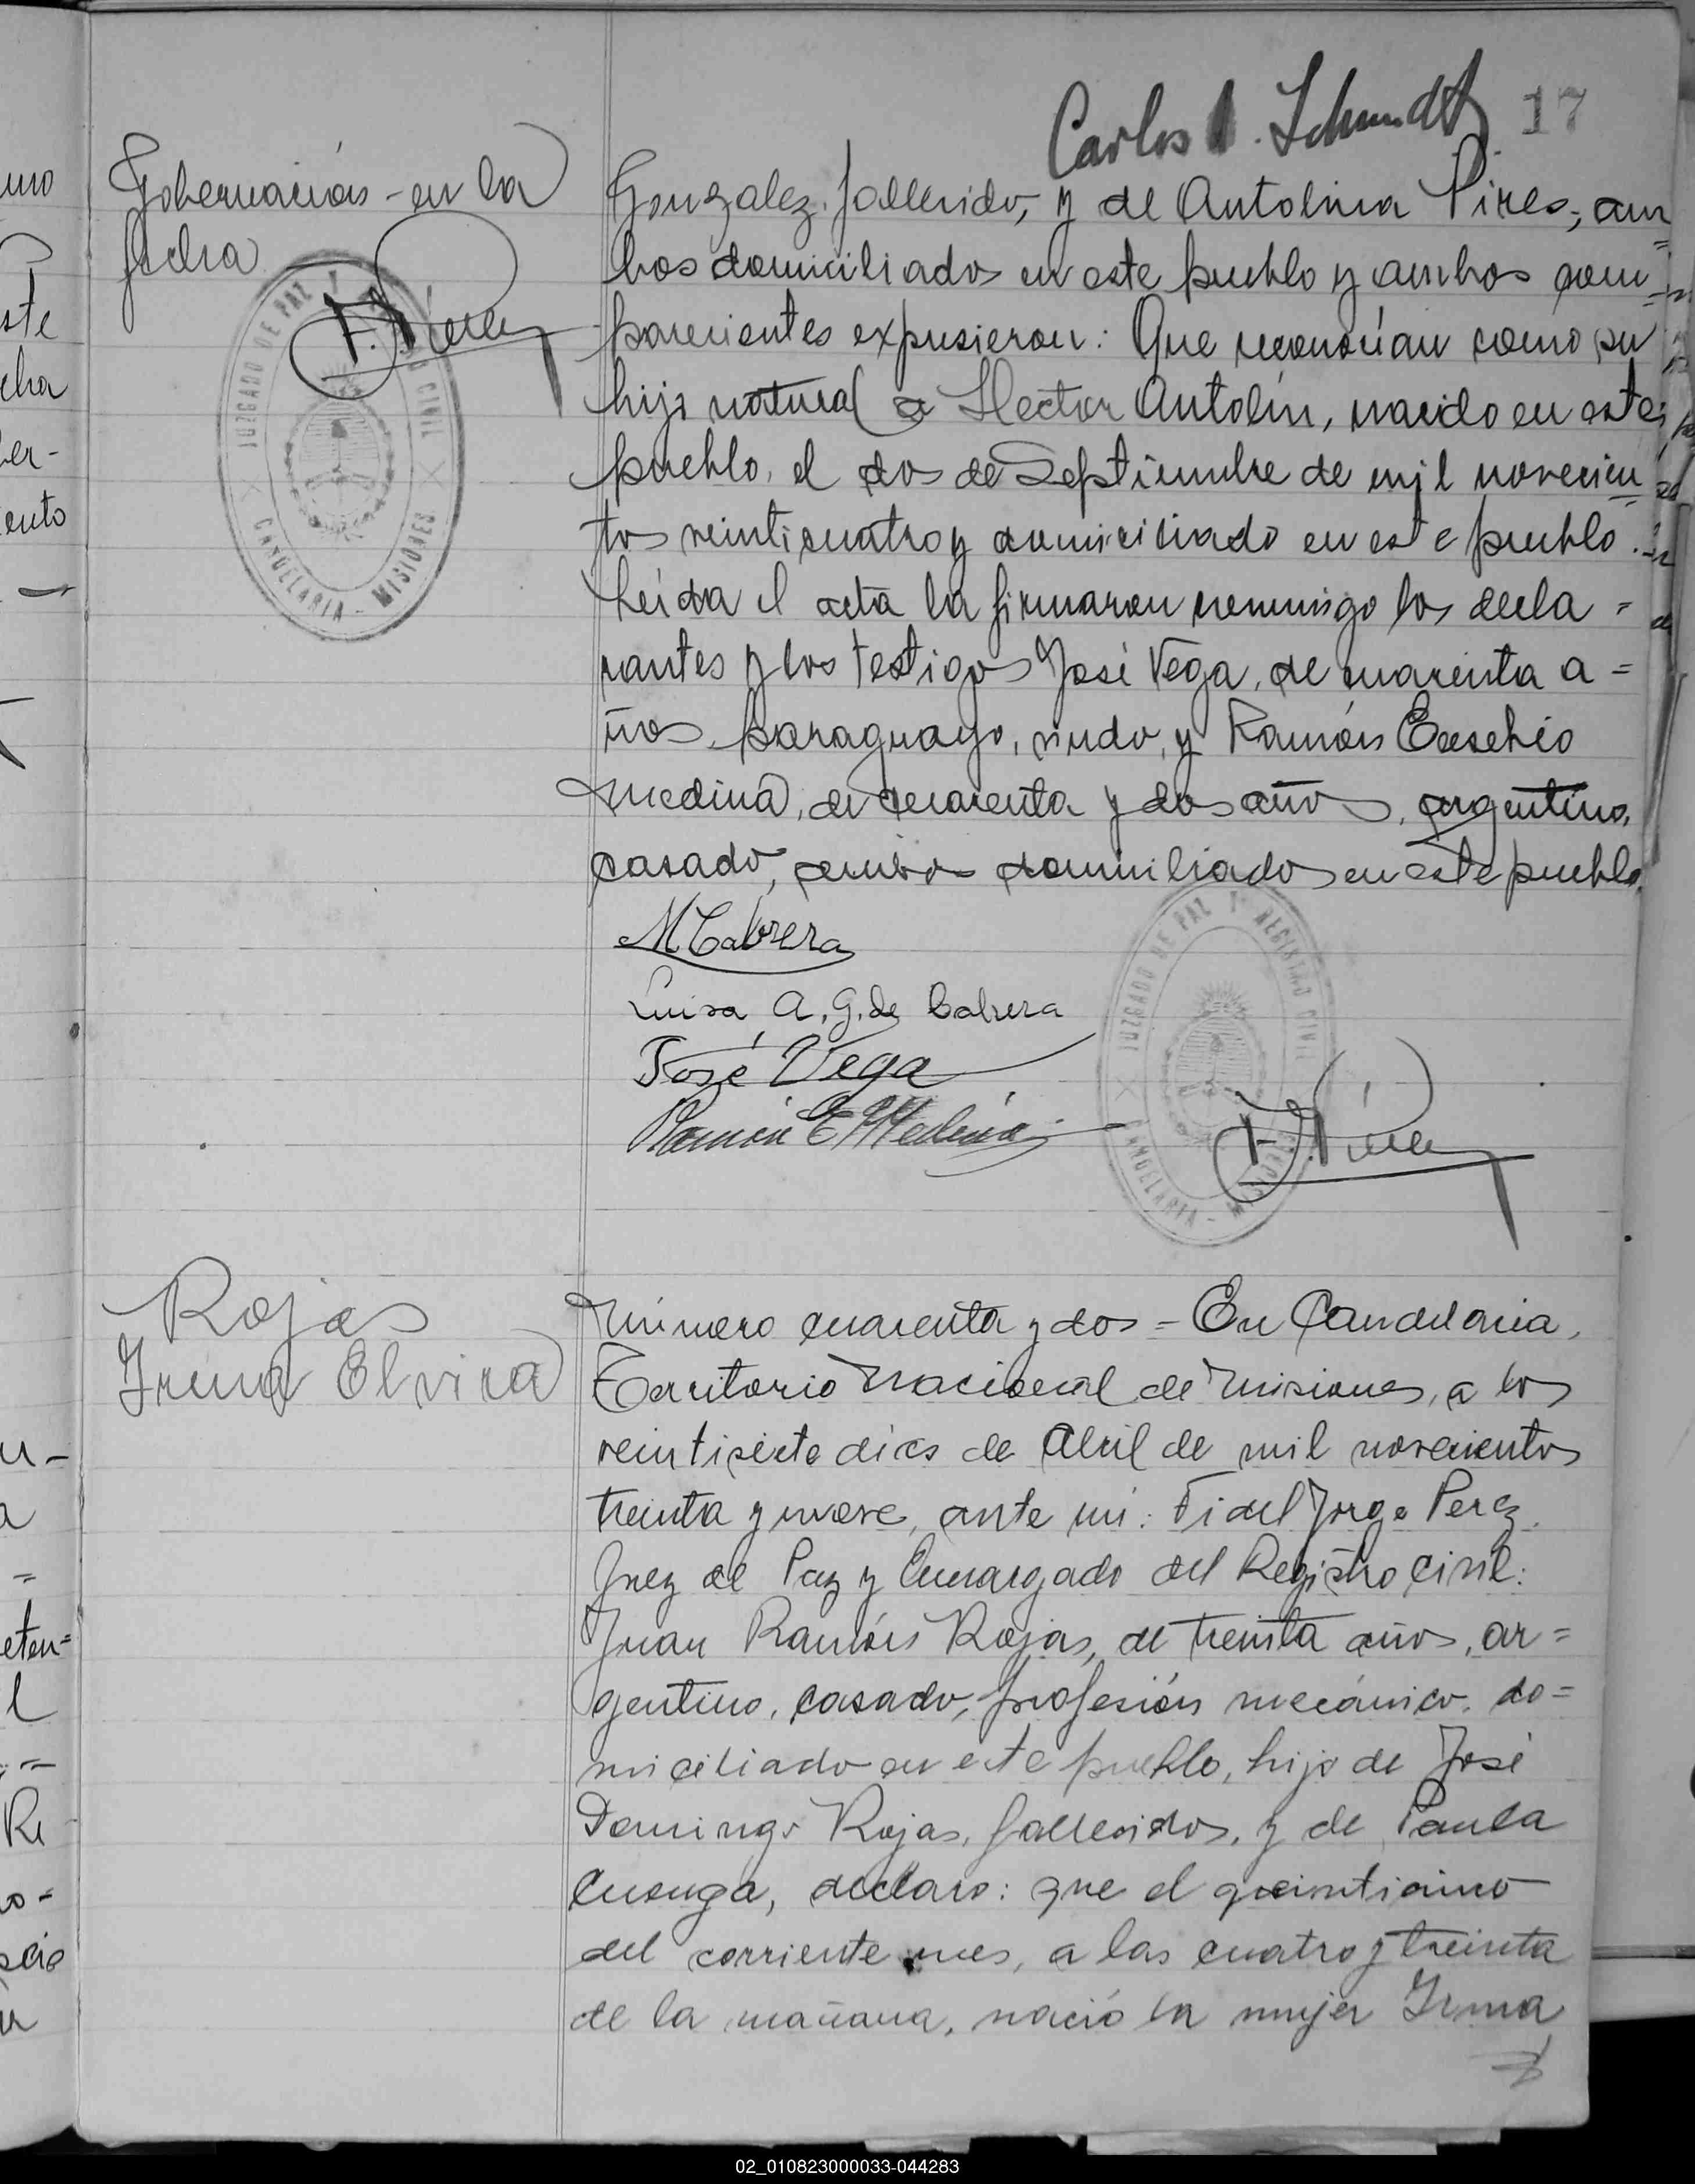 Carlos Schmidt 17
Gobernación - en la
fecha
F. J. Pérez
JUZGADO DE PAZ Y REGISTRO CIVIL
CANDELARIA - MISIONES
Gonzalez, fallecido, y de Antolina Pires, am
bos domiciliados en este pueblo y ambos com=
parecientes expusieron: Que reconocían como su
hijo natural a Hector Antolín, nacido en este
pueblo, el dos de Septiembre de mil novecien=
tos veinticuatro y domiciliado en este pueblo.
Leída el acta la firmaron conmigo los decla=
rantes y los testigos José Vega, de cuarenta a=
ños, paraguayo, viudo, y Ramón Eusebio
Medina, de cuarenta y dos años, argentino,
casado, ambos domiciliados en este pueblo.
M Cabrera
Luisa A. G. de Cabrera
José Vega
Ramón E Medina
JUZGADO DE PAZ Y REGISTRO CIVIL
CANDELARIA - MISIONES
F. J. Pérez
Rojas
Irma Elvira
Número cuarenta y dos = En Candelaria,
Territorio Nacional de Misiones, a los
veintisiete dias de Abril de mil novecientos
treinta y nueve, ante mi: Fidel Jorge Perez
Juez de Paz y Encargado del Registro Civil:
Juan Ramón Rojas, de treinta años, ar=
gentino, casado, profesión mecánico, do=
miciliado en este pueblo, hijo de José
Domingo Rojas, fallecidos, y de Paula
declaro: que el
del corriente mes, a las cuatro y treinta
de la mañana, nació la mujer Irma
02_010823000033-044283